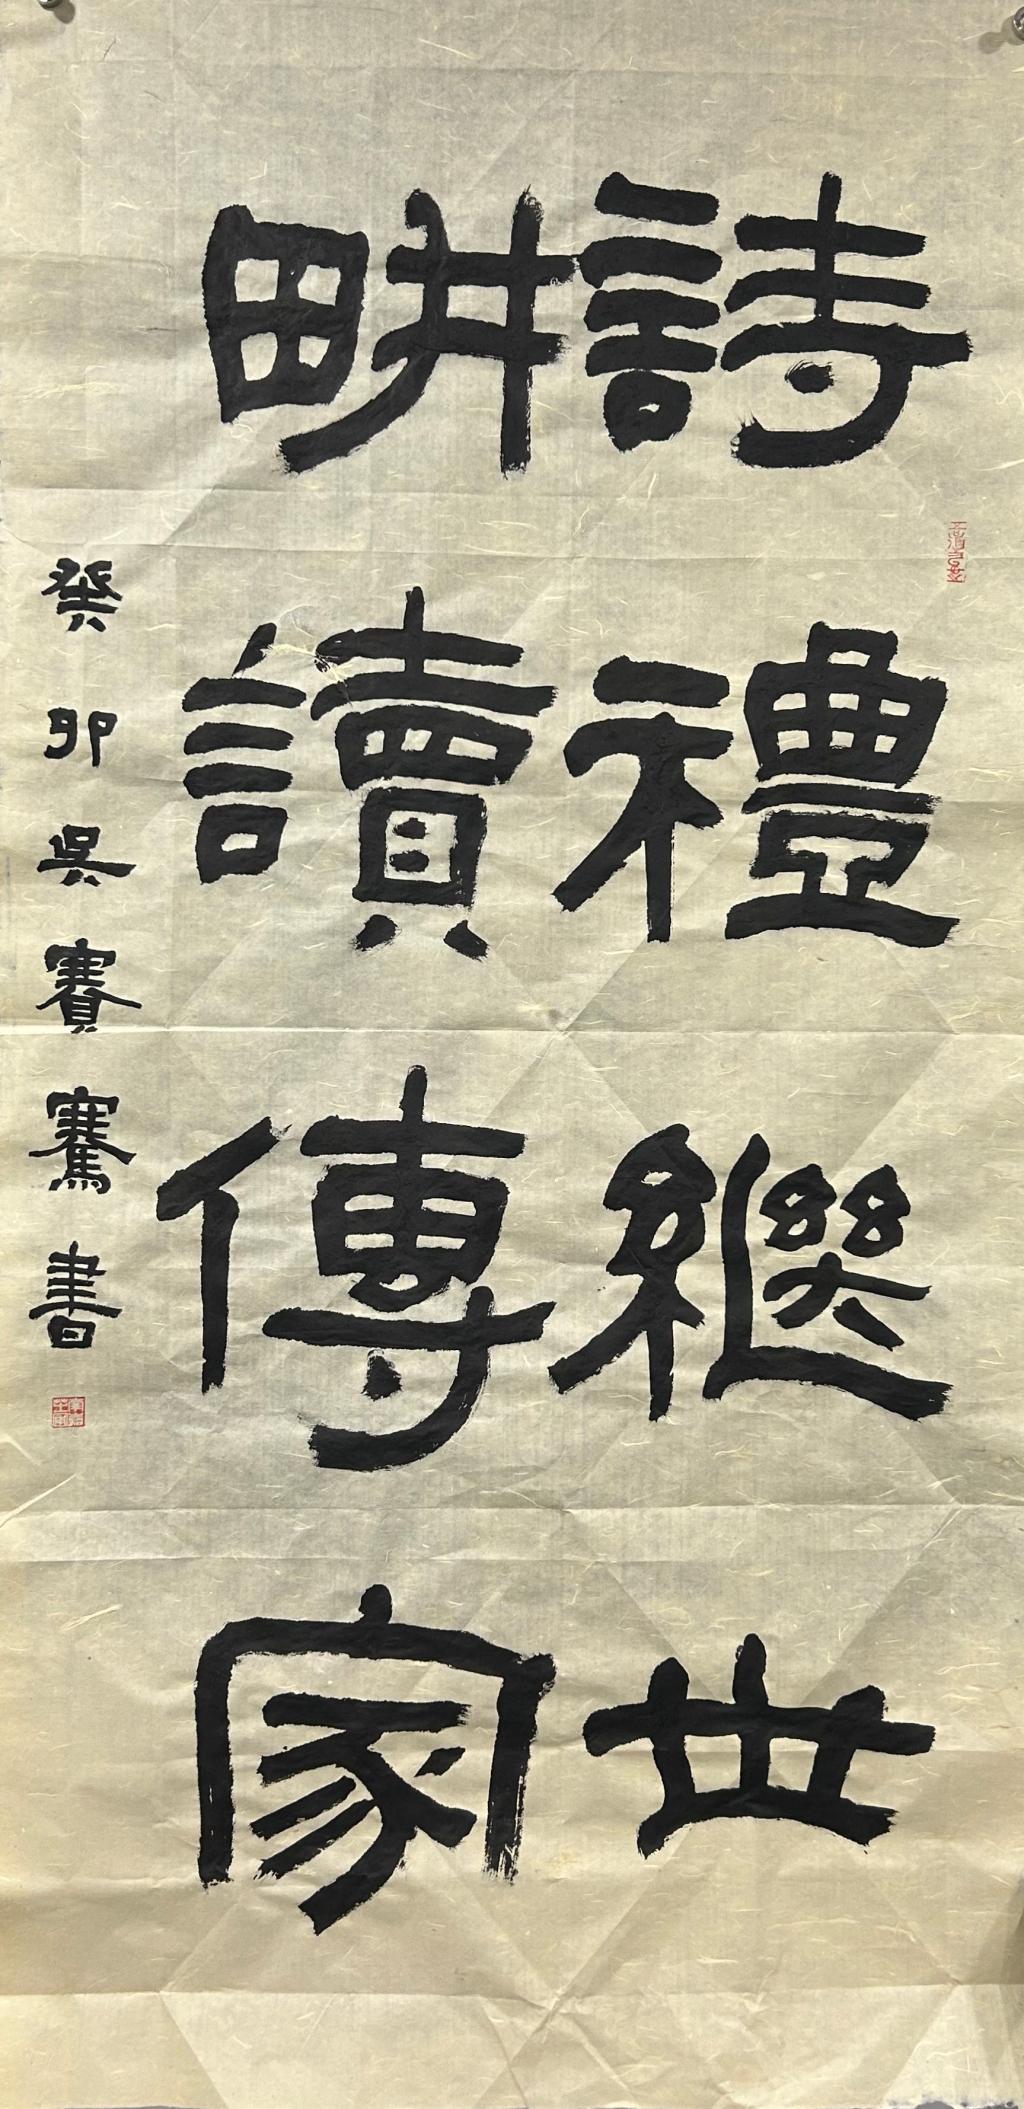 詩禮繼世
畊讀傳家
癸卯吳賽騫書